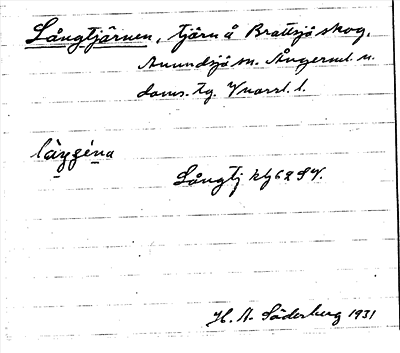 Långtjärnen, tjärn å Brattsjö skog,
Anundsjö sn. Ångerml. n.
doms. tg. Vnorrl. l.
läygéna
Långtj kbl 62 SV.
H. A. Söderberg 1931